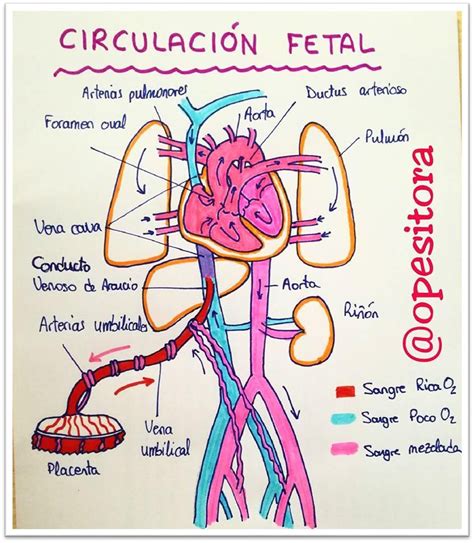 CIRCULACIÓN FETAL
Arterias pulmonares
Ductus arterioso
Foramen oval
Aorta
Pulmón
Vena cava
Conducto
Venoso de Arancio
Aorta
Arterias umbilicales
Riñón
Vena
umbilical
Placenta
Sangre Rica O₂
Sangre Poco O₂
Sangre mezclada
@opesitora